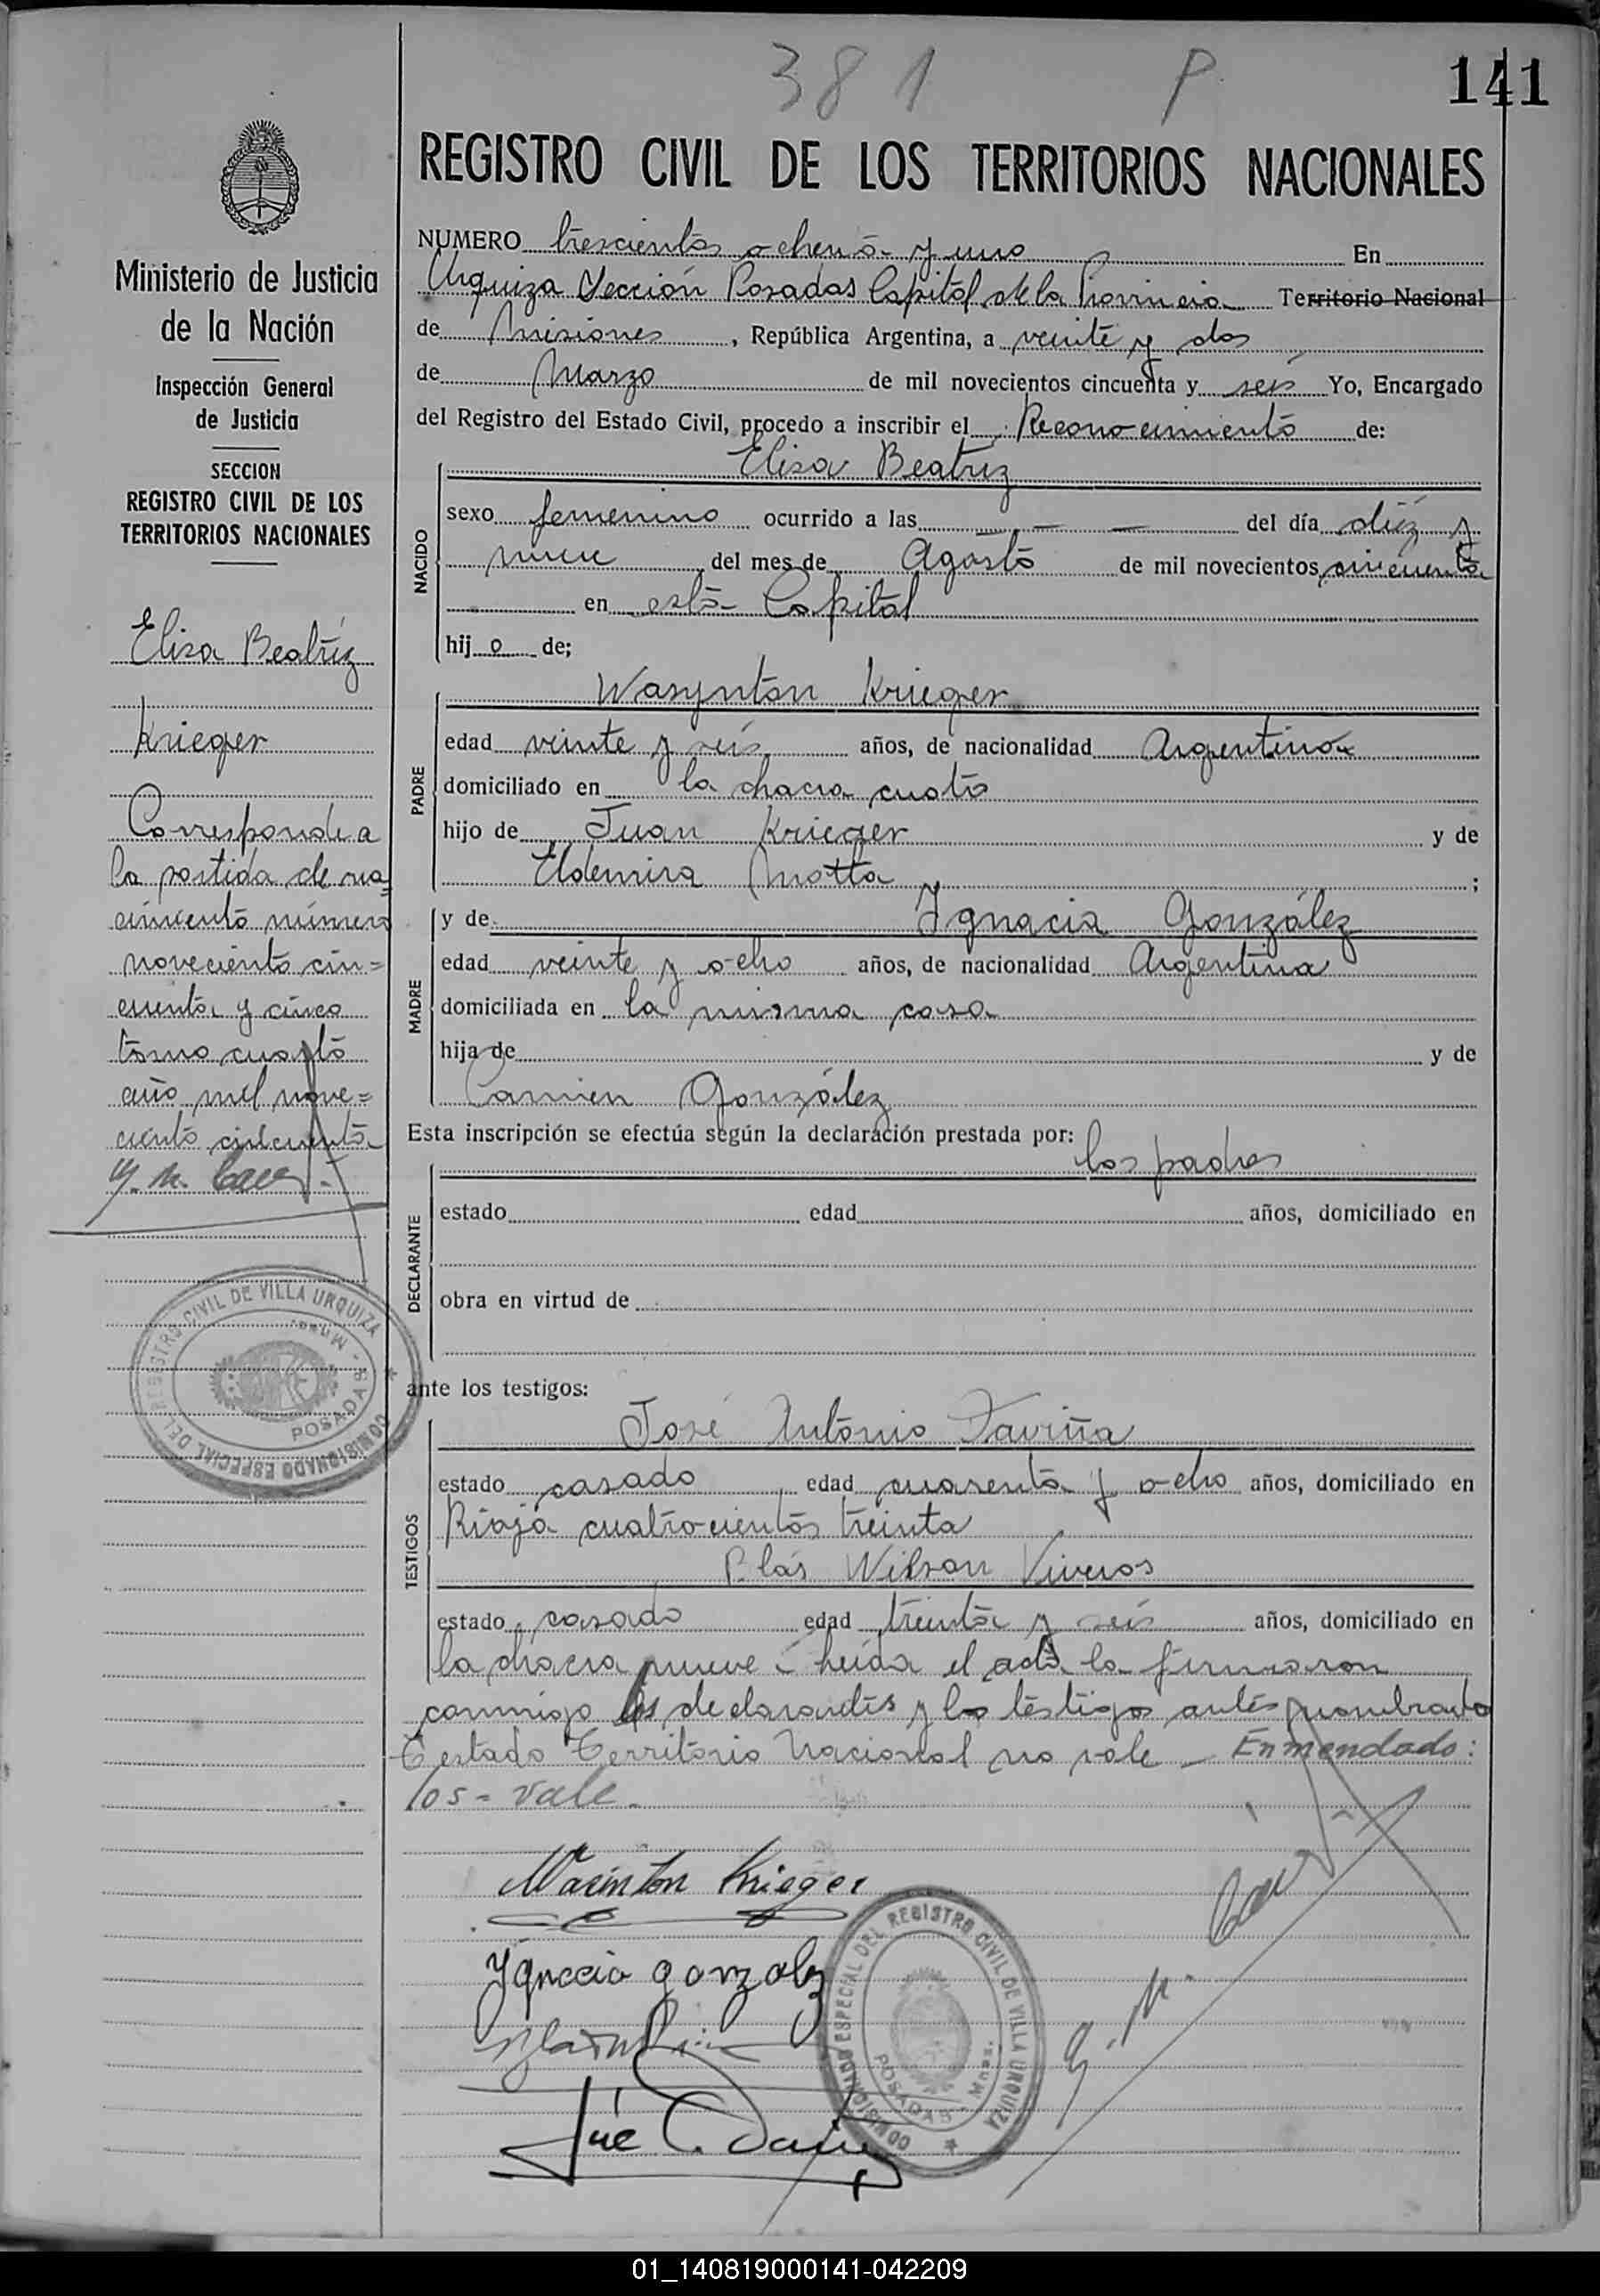 381 P 141
REGISTRO CIVIL DE LOS TERRITORIOS NACIONALES
Ministerio de Justicia
de la Nación
Inspección General
de Justicia
SECCION
REGISTRO CIVIL DE LOS
TERRITORIOS NACIONALES
Elisa Beatríz
Krieger
Corresponde a
la partida de na=
cimiento número
noveciento cin=
cuenta y cinco
tomo cuarto
año mil nove=
ciento cincuenta
COMISIONADO ESPECIAL DEL REGISTRO CIVIL DE VILLA URQUIZA
POSADAS - Mnes.
NUMERO trescientos ochenta y uno En
Urquiza Sección Posadas Capital de la Provincia Territorio Nacional
de Misiones, República Argentina, a veinte y dos
de Marzo de mil novecientos cincuenta y seis Yo, Encargado
del Registro del Estado Civil, procedo a inscribir el Reconocimiento de:
NACIDO
Elisa Beatriz
sexo femenino ocurrido a las — — del día diéz y
nueve del mes de Agosto de mil novecientos cincuenta
en esta Capital
hij o de;
PADRE
Wasynton Krieger
edad veinte y seis años, de nacionalidad Argentino
domiciliado en la chacra cuatro
hijo de Juan Krieger y de
Eldemira Motta ;
MADRE
y de Ignacia González
edad veinte y ocho años, de nacionalidad Argentina
domiciliada en la misma casa
hija de y de
Carmen González
Esta inscripción se efectúa según la declaración prestada por:
DECLARANTE
los padres
estado edad años, domiciliado en
obra en virtud de
ante los testigos:
TESTIGOS
José Antonio Daviña
estado casado edad cuarenta y ocho años, domiciliado en
Rioja cuatrocientos treinta
Blás Wilson Viveros
estado casado edad treinta y seis años, domiciliado en
la chacra nueve - Leída el acta la firmaron
conmigo los declarantes y los testigos antes nombrado
Testado Territorio Nacional no vale - Enmendado:
los - vale.
Wasinton Krieger
Ygnacia gonzalez
José A. Daviña
COMISIONADO ESPECIAL DEL REGISTRO CIVIL DE VILLA URQUIZA
POSADAS - Mnes.
01_140819000141-042209